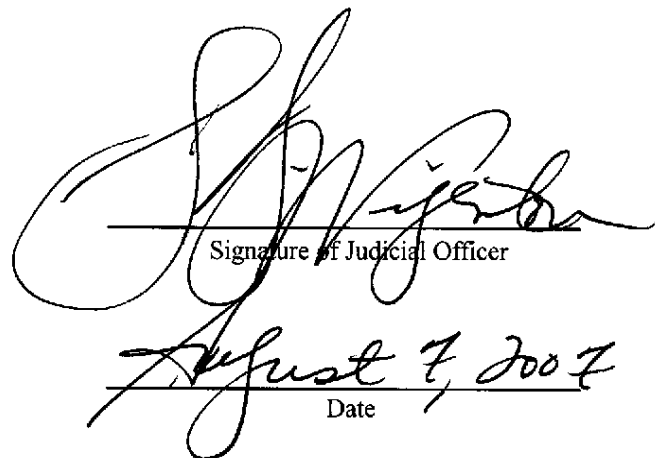 Signature of Judicial Officer
August 7, 2007
Date